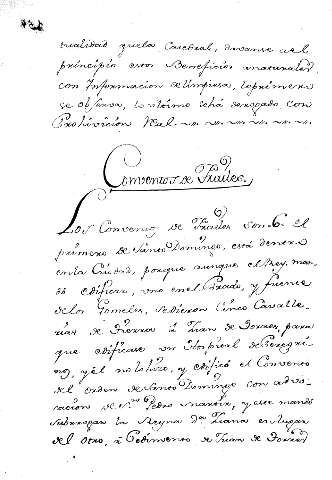 tualidad que la Catedral, devanse al
principio estos Beneficios a naturales
con Informacion de limpiesa, lo primero
se observa, lo ultimo está derogado con
Prohivicion Real.
Conventos de Frailes,
Los Conventos de Frailes son 6. el
primero de Santo Domingo, está dentro
en la Ciudad, porque aunque el Rey, man
dó edificar, uno en el Prado, y fuente
de los Gomeles, se dieron cinco Cavalle
rias de tierra á Juan de Torres, para
que edificase un Hospital de Peregri
nos, y él no lo hizo, y edificó el Convento
del orden de Santo Domingo con advo
cacion de Sn. Pedro Martir, y este mandó
subrrogar la Reyna Da. Juana en lugar
del otro, á Pedimento de Juan de Torres